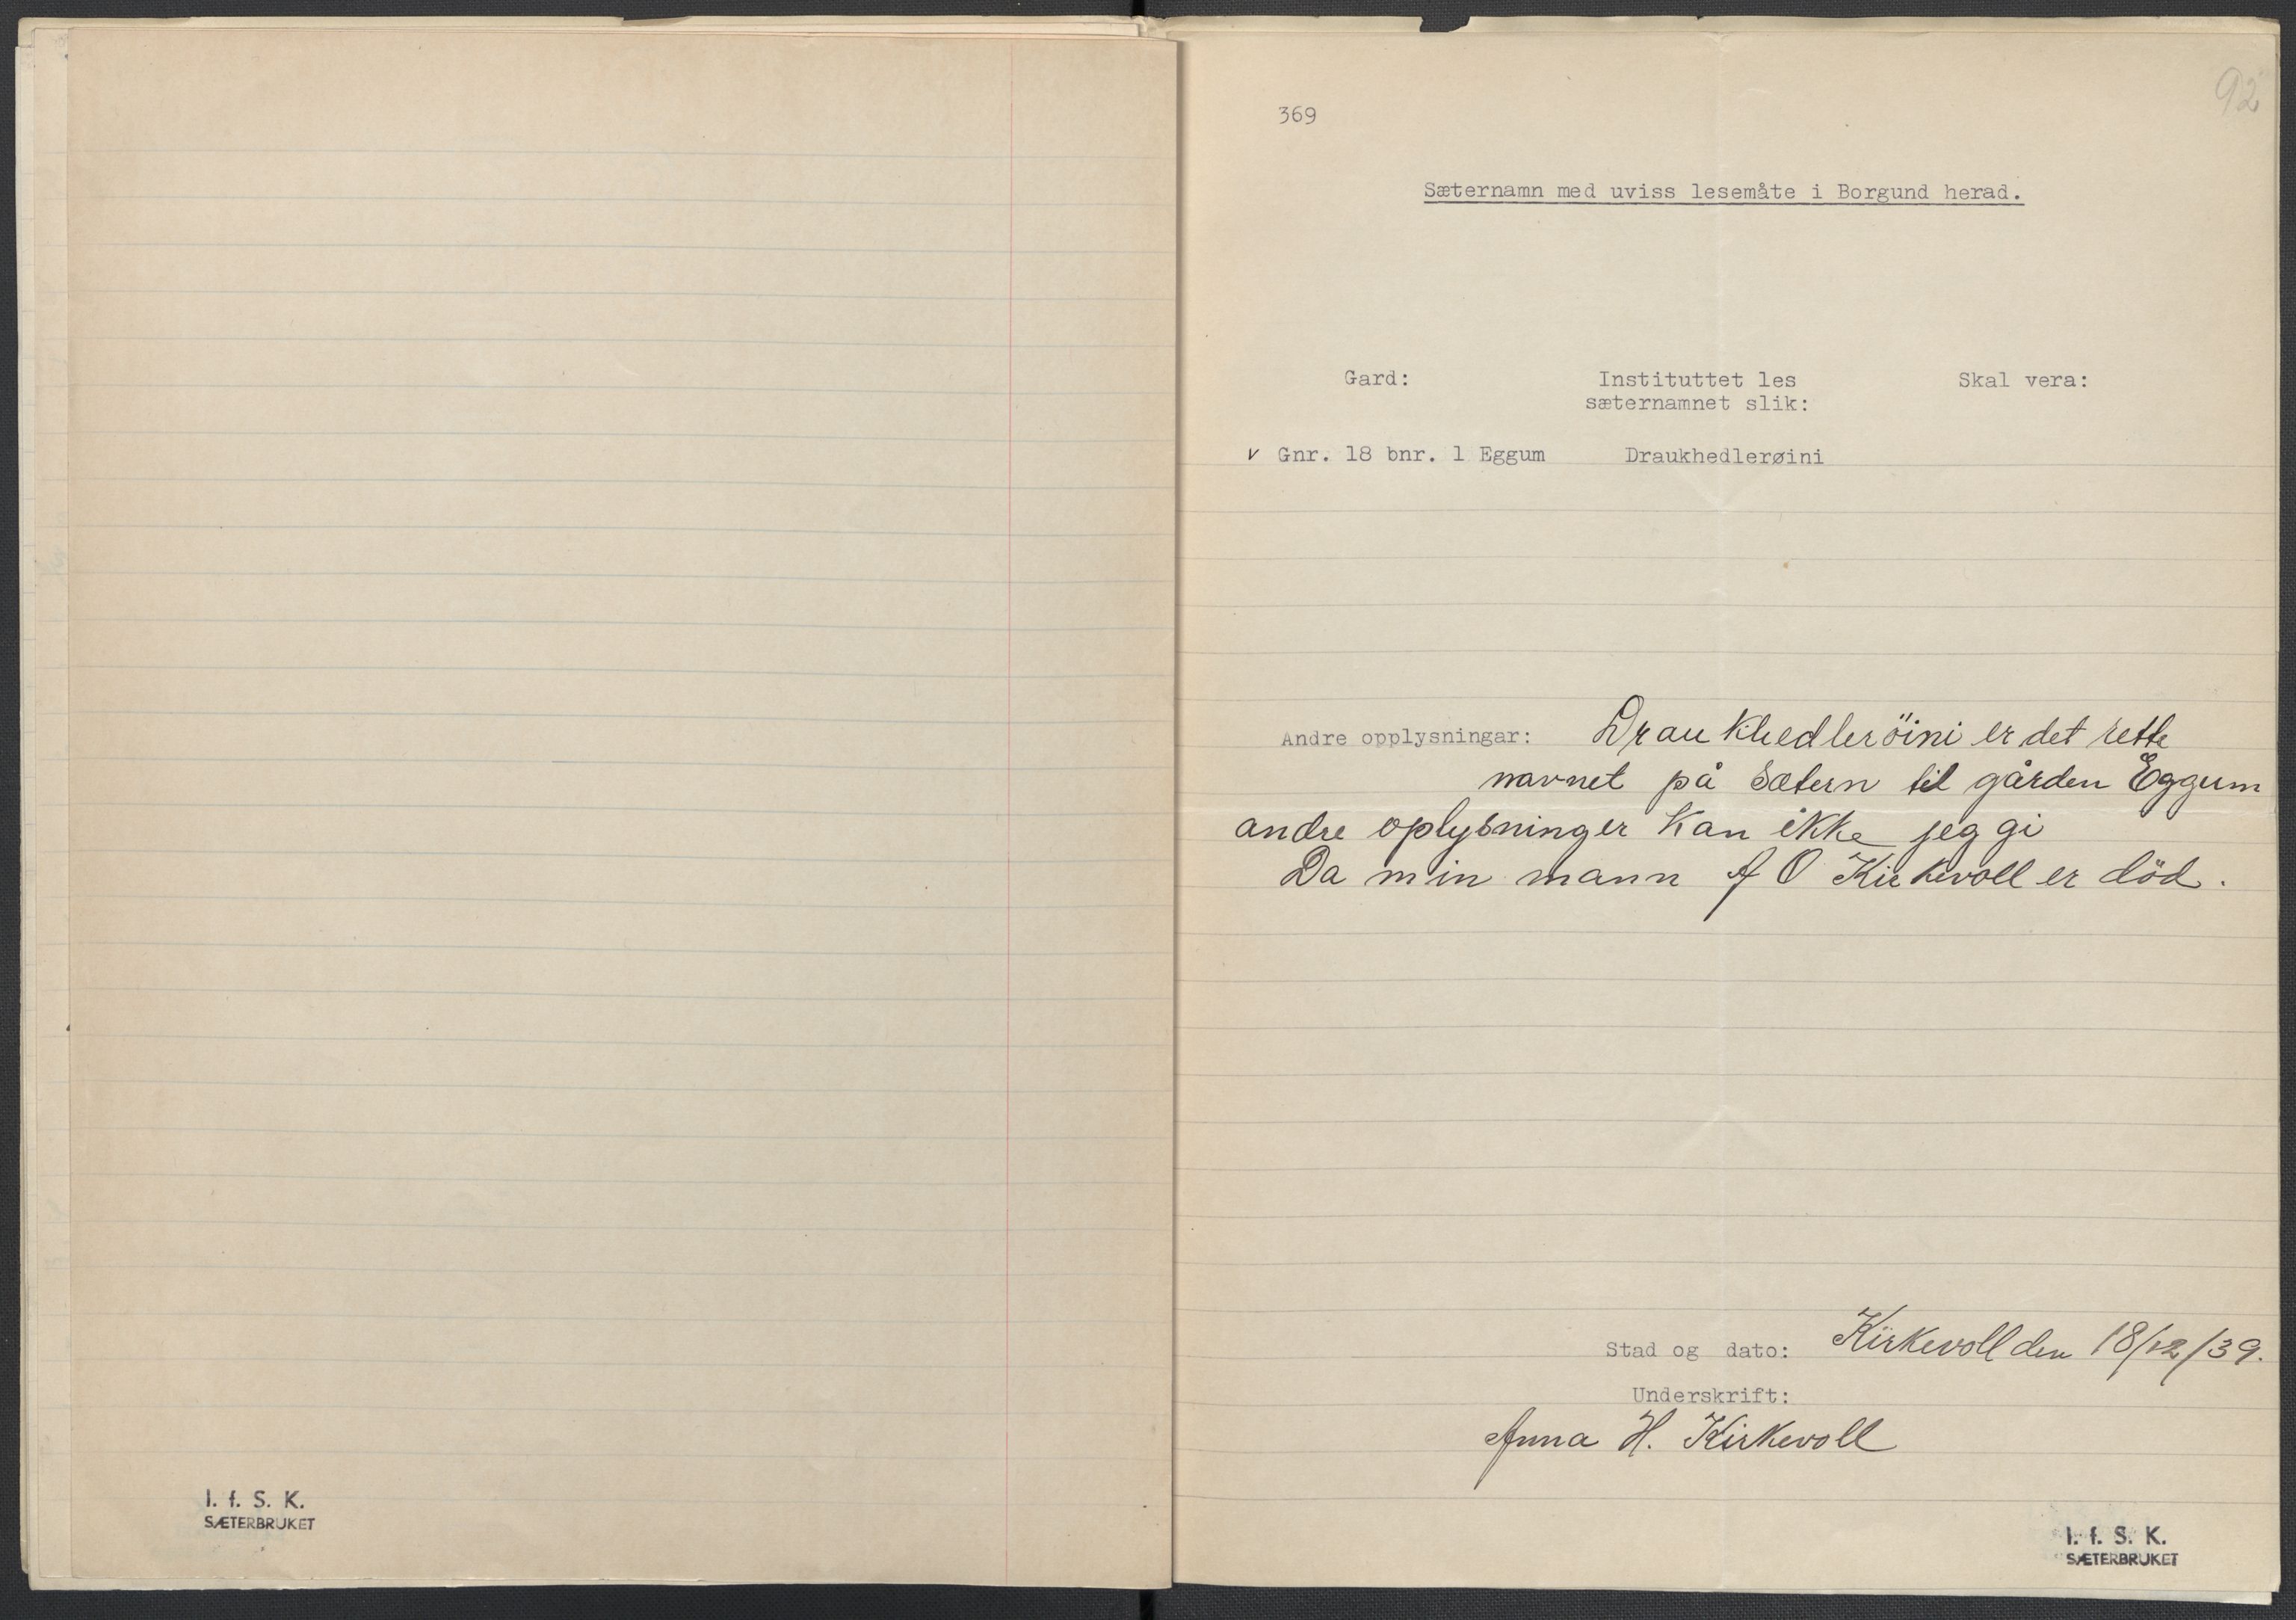 I. f. S. K.
SÆTERBRUKET
92
369
Sæternamn med uviss lesemåte i Borgund herad.
Gard: Instituttet les sæternamnet slik: Skal vera:
v Gnr. 18 bnr. 1 Eggum Draukhedlerøini
Andre opplysningar: Draukhedleröini er det rette
navnet på Sætern til gården Eggum
andre oplysninger kan ikke jeg gi
Da min mann A O Kirkevoll er död.
Stad og dato: Kirkevoll den 18/12/39.
Underskrift:
Anna H. Kirkevoll
I. f. S. K.
SÆTERBRUKET